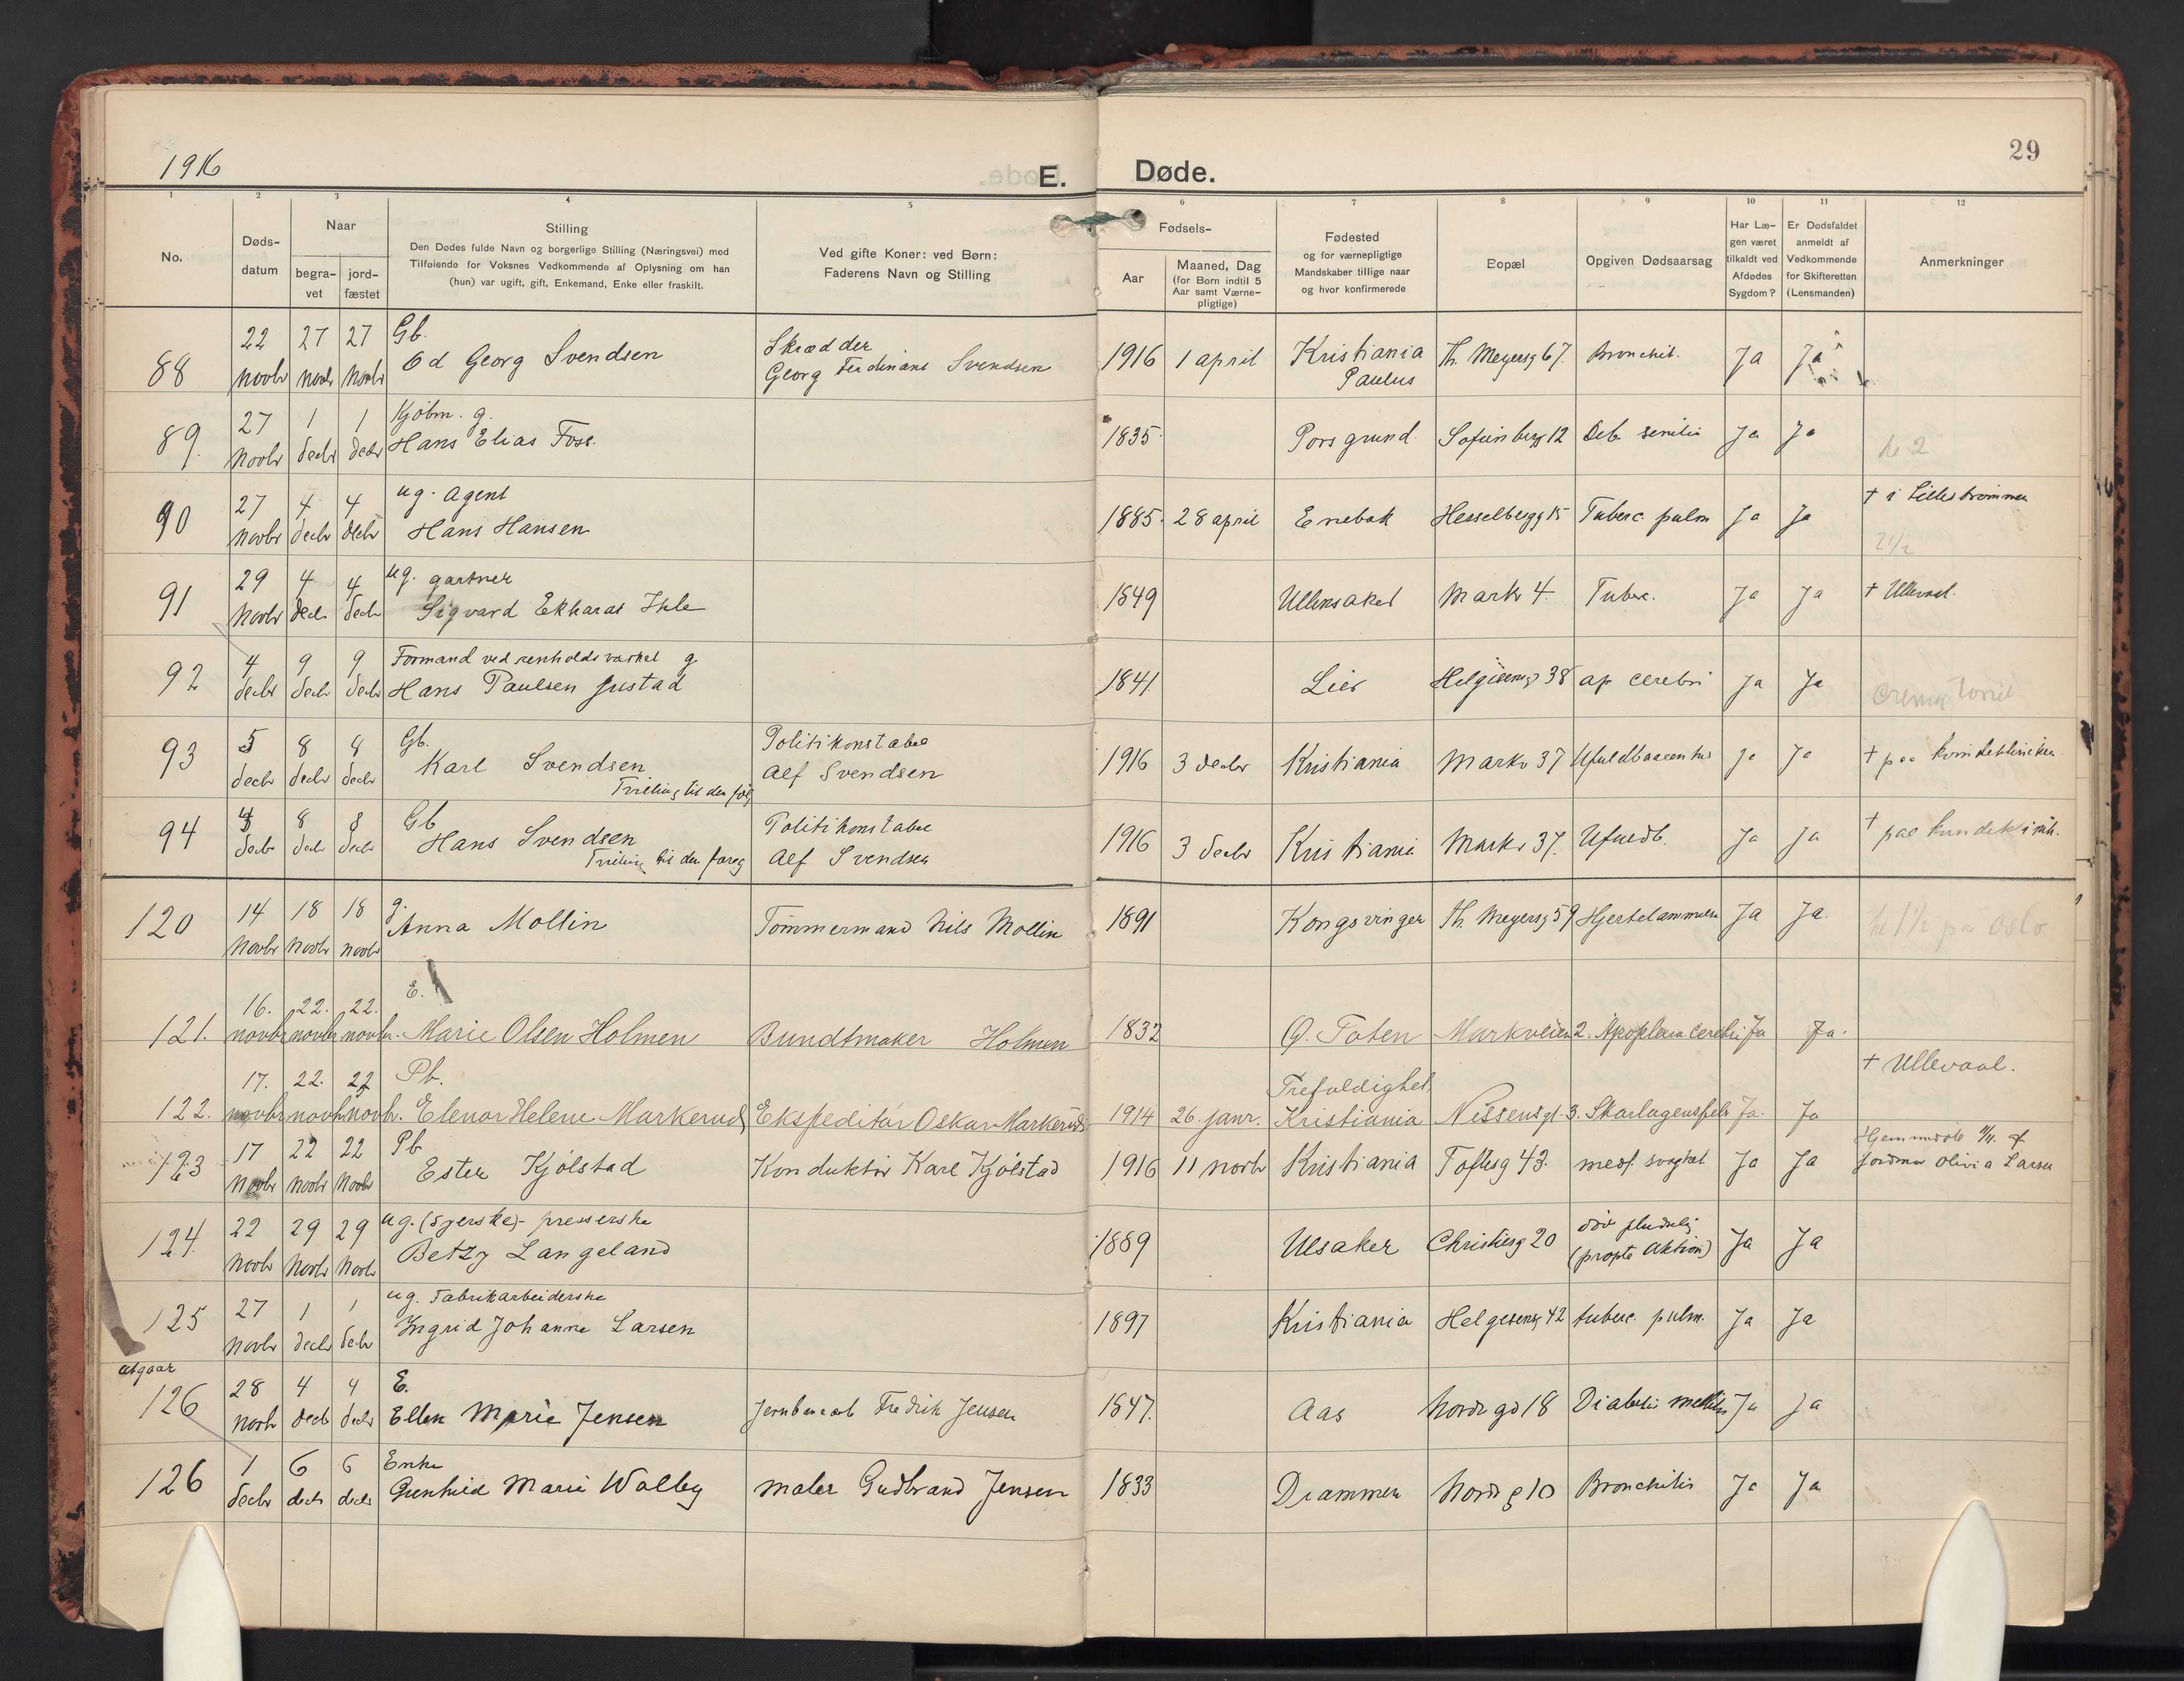 1916
E. Døde.
29
1 2 3 4 5 6 7 8 9 10 11 12
No.
Døds-
datum
Naar
begra-
vet
jord-
fæstet
Stilling
Den Dødes fulde Navn og borgerlige Stilling (Næringsvei) med
Tilføiende for Voksnes Vedkommende af Oplysning om han
(hun) var ugift, gift, Enkemand, Enke eller fraskilt.
Ved gifte Koner: ved Børn:
Faderens Navn og Stilling
Fødsels-
Aar
Maaned, Dag
(for Børn indtil 5
Aar samt Værne-
pligtige)
Fødested
og for værnepligtige
Mandskaber tillige naar
og hvor konfirmerede
Bopæl
Opgiven Dødsaarsag
Har Læ-
gen været
tilkaldt ved
Afdødes
Sygdom?
Er Dødsfaldet
anmeldt af
Vedkommende
for Skifteretten
(Lensmanden)
Anmerkninger
22 27 27 Gb. Skrædder
88 novbr novbr novbr Od Georg Svendsen Georg Ferdinans Svendsen 1916 1 april Kristiania Th. Meyersg 67. Bronchit. Ja Ja
Paulus
27 1 1 Kjøbm. g.
89. novbr decbr decbr Hans Elias Foss. 1835. Porsgrund Sofienbergg 12 Deb senilis Ja Ja
27 4 4 ug. agent † i Lillestrømmen
90 novbr decbr decbr Hans Hansen 1885. 28 april Enebak Hesselbergg 15 Tuberc. pulm Ja Ja
2 1/2
29 4 4 ug. gartner
91 novbr decbr decbr Sigvard Ekharat Ihle 1849 Ullensaker Markv 4. Tuberc. Ja Ja † Ullevaal.
4 9 9 Formand ved renholdsvæsnet g
92 decbr decbr decbr Hans Paulsen Justad 1841. Lier Helgesensg 38 ap cerebri Ja Ja
5 8 8 Gb. Politikonstabel
93 decbr decbr decbr Karl Svendsen Alf Svendsen 1916 3 decbr Kristiania Markv 37 Ufuldbaarenhet Ja Ja
Tvilling til den følg
8 8 Gb Politikonstabel
94 decbr decbr decbr Hans Svendsen Alf Svendsen 1916 3 decbr Kristiania Markv 37. Ufuldb. Ja Ja
Tvilling til den foreg
14 18 18 g.
120 novbr novbr novbr Anna Mollin Tømmermand Nils Mollin 1891 Kongsvinger Th. Meyersg 59 Hjertelammelse Ja Ja.
16. 22. 22. E.
121. novbr novbr novbr. Marie Olsen Holmen Bundtmaker Holmen 1832 Ø. Toten Markveien 2. Apoplexia cerebri Ja Ja.
17. 22. 22 Pb. Trefoldighet † Ullevaal.
122. novbr novbr novbr. Elenor Helene Markerud Ekspeditør Oskar Markerud 1914 26. janr. Kristiania Nissensgt. 3. Skarlagensfeb Ja. Ja
17 22 22 Pb Hjemmedøbt
123 novbr novbr novbr Ester Kjølstad Konduktør Karl Kjølstad 1916 11 novbr Kristiania Toftesg 43. medf. svaghet Ja Ja jordmor Olivia Larsen
22 29 29 ug. (syerske) presserske død pludselig
124. novbr novbr novbr Betzy Langeland 1889 Ulsaker Christiesg 20 Ja Ja
27 1 1 ug. Fabrikarbeiderske
125 novbr decbr decbr Ingrid Johanne Larsen 1897 Kristiania Helgesensg 42 tuberc. pulm. Ja Ja
utgaar
28 4 4 E.
126 novbr decb decbr Ellen Marie Jensen Fredrik Jensen 1847. Aas Nordrgd 18 Diabetis mellitus Ja Ja
1 6 6 Enke
126 decbr decbr decbr Gunhild Marie Walby maler Gudbrand Jensen 1833 Drammen Nordrg 10 Bronchitis Ja Ja